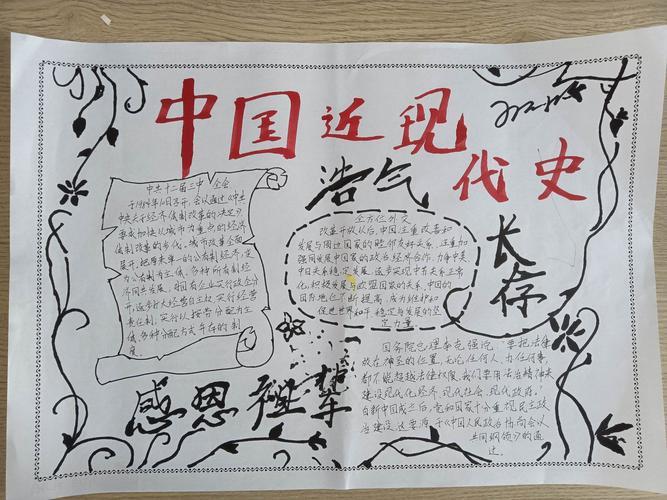 中国近现代史
浩气
长存
中共十二届三中全会
于1984年10月召开,会议通过《中共
中央关于经济体制改革的决定》
要求加快以城市为重点的经济
体制改革的步伐。城市改革全面
展开,把单一的公有制经济,定
为公有制为主体,各种所有制经
济同共发展,担国有企业实行政企分
开,逐步扩大企自主权,实行经营
责任制,实行以按劳分配为主
体,多种分配方式并存的制
度。
全方位外交
改革开放以后,中国注重改善和
发展与周边国家的睦邻友好关系,注重加
强同发展中国家的政治经济合作,力争中美
中日关系稳定发展,逐步实现中苏关系正常
化,积极发展与欧盟国家的关系,中国的
国际地位不断提高,成为维护和
促进世界和平、稳定与发展的坚
定力量
国务院总理李克强说:要把法律
放在神圣的位置,无论任何人、办任何事
都不能超越法律权限,我们要用法治精神来
建设现代化经济、现代社会、现代政府。
自新中国成立后,党和国家十分重视民主政
治建设,这要源于《中国人民政治协商会议
共同纲领》的通
过
感恩